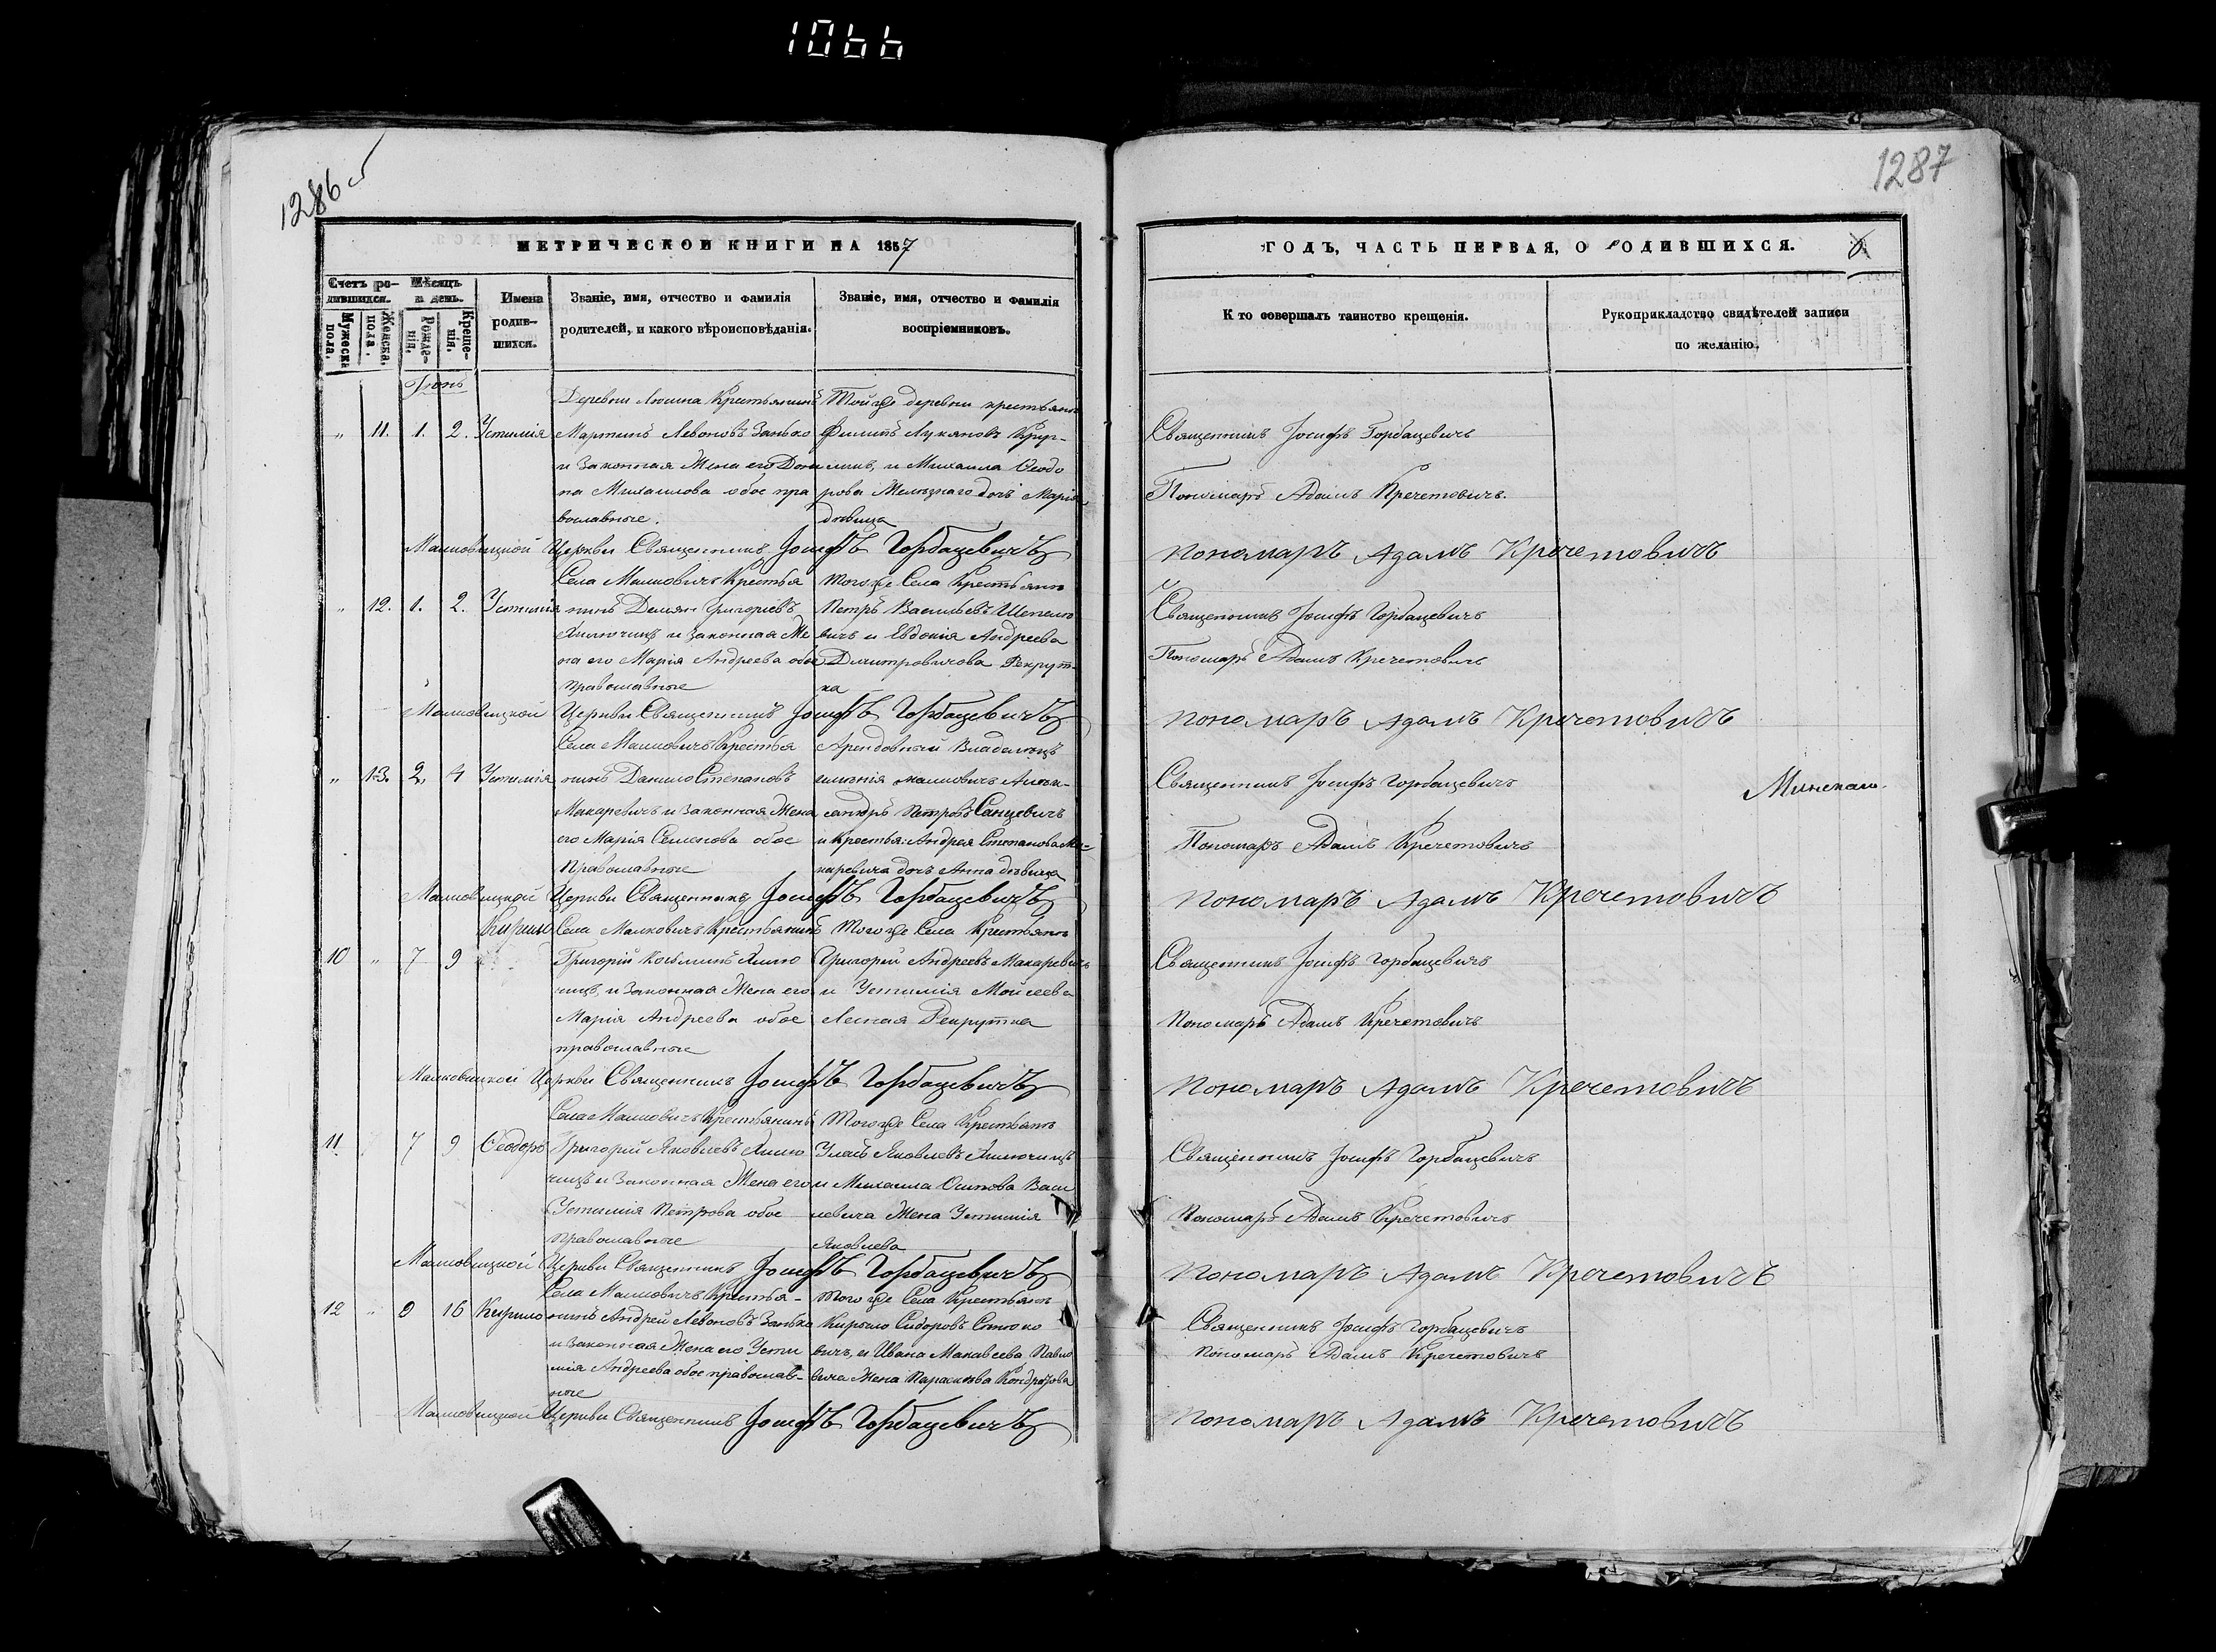 1066
1286 об
МЕТРИЧЕСКОЙ КНИГИ НА 1857
Счетъ родившихся.
Мужеска пола.
Женска пола.
Мѣсяцъ и день.
Рожденія.
Крещенія.
Имена родившихся.
Званіе, имя, отчество и фамилія
родителей, и какого вѣроисповѣданія.
Званіе, имя, отчество и фамилія
воспріемниковъ.
Іюнь
„ 11. 1. 2. Устимія
Деревни Люсина Крестьянинъ
Мартинъ Левоновъ Занько
и Законная Жена его Дом
на Михаилова обое пра
вославные.
Той же деревни крестьяне
Филипъ Лукяновъ
и Михаила Ѳеодо
рова дочь Марія
дѣвица
Малковицкой Церкви Священникъ Іосифъ Горбацевичъ
„ 12. 1. 2. Устимія
Села Малковичъ Крестья
нинъ Демян Григоріевъ
и законная Же
на его Марія Андреева обое
православные
Того же Села Крестьяне
Петръ Васильевъ
вичъ и Евдокія Андреева
Дмитровичова Рекрут-
ка
Малковицкой Церкви Священникъ Іосифъ Горбацевичъ
„ 13. 2. 4 Устимія
Села Малковичъ Крестья
нинъ Данило Степановъ
Макаревичъ и Законная Жена
его Марія Семенова обое
Православные
Арендовный Владелецъ
имѣнія Малковичъ Алек-
сандръ Петровъ Санцевичъ
и крестья: Андрея Степанова Ма-
каревича дочь Анна дѣвица
Малковицкой Церкви Священникъ Іосифъ Горбацевичъ
10 „ 7 9 Кирило
Села Малковичъ Крестьянинъ
Григорій Косьминъ Хилю
чицъ, и Законная Жена его
Марія Андреева обое
православные
Того же Села Крестьяне
Григорій Андреевъ Макаревичъ
и Устимія Мойсеева
Лесная Рекрутка
Малковицкой Церкви Священникъ Іосифъ Горбацевичъ
11 7 9 Ѳеодоръ
Села Малковичъ Крестьянинъ
Григорій Яковлевъ Хилю
чицъ и Законная Жена его
Устимія Петрова обое
Православные
Того же Села Крестьяне
Улас Яковлевъ Хилючицъ
и Михаила Осипова Васи
левича Жена Устимія
Яковлева
Малковицкой Церкви Священникъ Іосифъ Горбацевичъ
12 „ 9 16 Кирило
Села Малковичъ Крестья-
нинъ Андрей Левоновъ Занько
и законная Жена его Усти
мія Андреева обое православ-
ные
Того же Села Крестьяне
Кирыло Сидоровъ
вичъ, и Ивана Макавеева Павло
вича Жена Параскева Кондратова
Малковицкой Церкви Священникъ Іосифъ Горбацевичъ
1287
ГОДЪ, ЧАСТЬ ПЕРВАЯ, О РОДИВШИХСЯ.
Кто совершалъ таинство крещенія.
Рукоприкладство свидѣтелей записи
по желанію.
Священникъ Іосифъ Горбацевичъ
Пономаръ Адамъ Кречетовичъ.
Пономаръ Адамъ Кречетовичъ
Священникъ Іосифъ Горбацевичъ
Пономаръ Адамъ Кречетовичъ
Пономаръ Адамъ Кречетовичъ
Священникъ Іосифъ Горбацевичъ
Пономаръ Адамъ Кречетовичъ
Пономаръ Адамъ Кречетовичъ
Священникъ Іосифъ Горбацевичъ
Пономаръ Адамъ Кречетовичъ
Пономаръ Адамъ Кречетовичъ
Священникъ Іосифъ Горбацевичъ
Пономаръ Адамъ Кречетовичъ
Пономаръ Адамъ Кречетовичъ
Священникъ Іосифъ Горбацевичъ
Пономаръ Адамъ Кречетовичъ
Пономаръ Адамъ Кречетовичъ